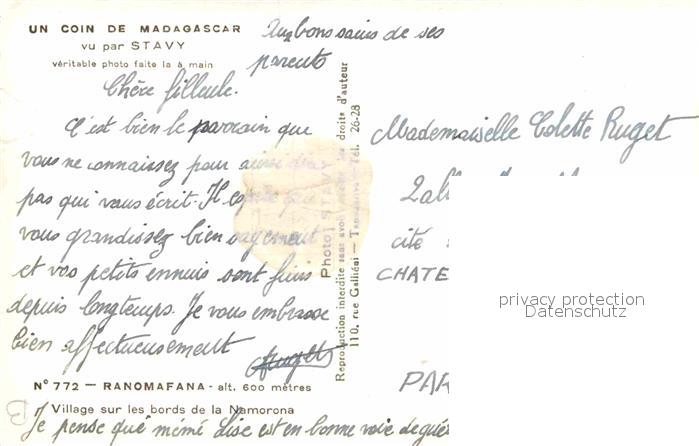 UN COIN DE MADAGASCAR
vu par STAVY
véritable photo faite la à main
Aux bons soins de ses
parents
Chère filleule.
C'est bien le parrain que
vous ne connaissez pour ainsi dire
pas qui vous écrit. Il espère que
vous grandissez bien sagement
et vos petits ennuis sont finis
depuis longtemps. Je vous embrasse
bien affectueusement
Ruget
N° 772 — RANOMAFANA - alt. 600 mètres
Village sur les bords de la Namorona
Je pense que mémé Lise est en bonne voie de
Photo STAVY
Reproduction interdite sans droits d'auteur
110, rue Galliéni — Tél. 26-28
Mademoiselle Colette Ruget
cité
CHATE
PAR
privacy protection
Datenschutz